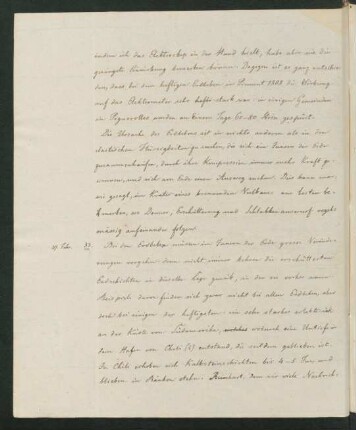 indem ich das Elektroskop in der Hand hielt, habe aber nie die
geringste Einwirkung bemerken können. Dagegen ist es ganz entschie-
den, dass bei dem heftigen Erdbeben in Piemont 1808 die Wirkung
auf das Elektrometer sehr stark war in einigen Gemeinden
in Pignerolles wurden an einem Tage Stösse gespürt.
Die Ursache des Erdbebens ist in nichts anderem als in den
elastischen Flüssigkeiten zu suchen, die sich im Innern der Erde
zusammenhäufen, durch ihre Kompression immer mehr Kraft ge-
winnen, und sich von da einen Ausweg suchen. Dies kann man
wie gesagt, im Krater eines brennenden Vulkans am besten be-
merken, wo Donner, Erschütterung und Schlackenauswurf regel-
mässig aufeinander folgen.
Bei den Erdbeben müssen im Innern der Erde grosse Verände-
rungen vorgehen denn nicht immer kehren die erschütterten
Erdschichten in dieselbe Lage zurück, in der sie vorher waren
Das findet sich zwar nicht bei allen Erdbeben aber
doch bei einigen der heftigsten. ein sehr starker
an der Küste von Südamerika, wodurch eine Untiefe in
dem Hafen von Chili entstand, die seitdem geblieben ist.
In Chile erhoben sich Kalksteinschichten bis 4-5 Fuss, und
blieben in Bänken stehen. Reinhart, dem wir viele Nachrich-